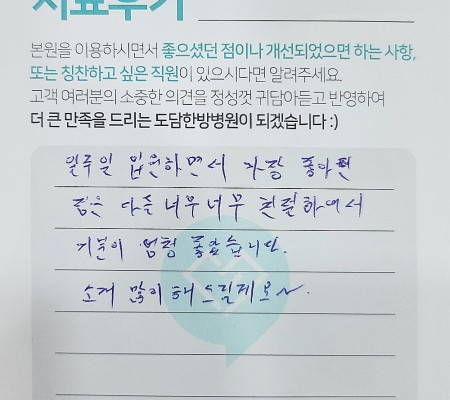 치료후기
본원을 이용하시면서 좋으셨던 점이나 개선되었으면 하는 사항,
또는 칭찬하고 싶은 직원이 있으시다면 알려주세요.
고객 여러분의 소중한 의견을 정성껏 귀담아듣고 반영하여
더 큰 만족을 드리는 도담한방병원이 되겠습니다 :)
일주일 입원하면서 가장 좋아던
점은 다들 너무너무 친절하여서
기분이 엄청 좋았습니다.
소개 많이 해 드릴게요~.